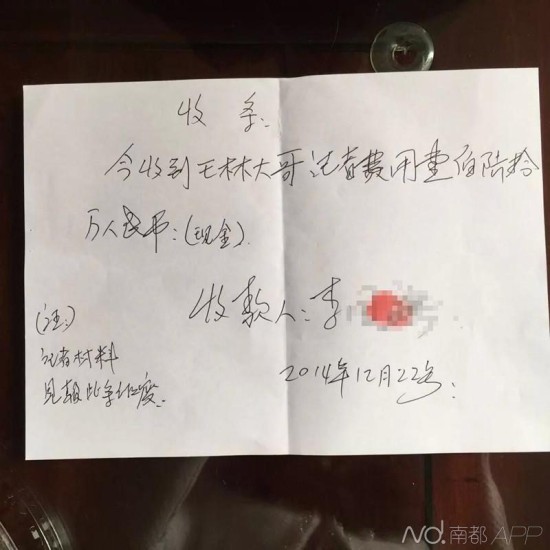 收条:
今收到王林大哥记者费用壹佰陆拾
万人民币:(现金).
收款人:李
2014年12月22号:
(注:)
记者材料
见报此条作废.
Nd.南都APP